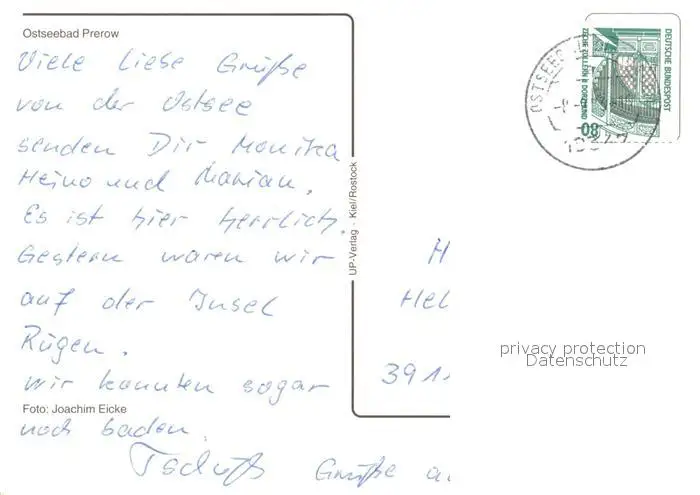 Ostseebad Prerow
Viele liebe Grüße
von der Ostsee
senden Dir Monika
Heino und Marian.
Es ist hier herrlich.
Gestern waren wir
auf der Insel
Rügen.
wir konnten sogar
Foto: Joachim Eicke
noch baden.
Tschüß Grüße a
UP-Verlag · Kiel/Rostock
H
Hel
391
OSTSEEB
DEUTSCHE BUNDESPOST
ZECHE ZOLLERN II DORTMUND
80
privacy protection
Datenschutz